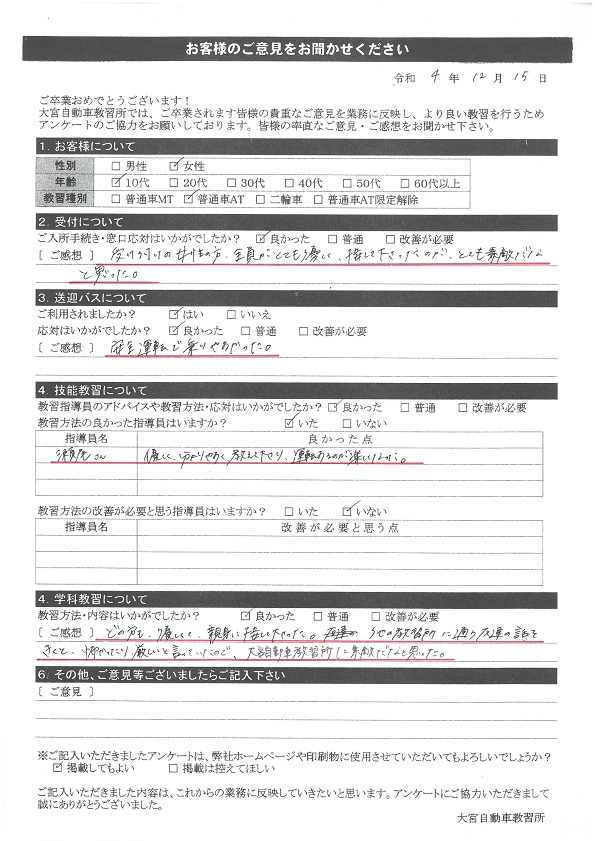 お客様のご意見をお聞かせください
令和 4 年 12 月 15 日
ご卒業おめでとうございます！
大宮自動車教習所では、ご卒業されます皆様の貴重なご意見を業務に反映し、より良い教習を行うため
アンケートのご協力をお願いしております。皆様の率直なご意見・ご感想をお聞かせ下さい。
1. お客様について
性別 □ 男性 ☑ 女性
年齢 ☑ 10代 □ 20代 □ 30代 □ 40代 □ 50代 □ 60代以上
教習種別 □ 普通車MT ☑ 普通車AT □ 二輪車 □ 普通車AT限定解除
2. 受付について
ご入所手続き・窓口応対はいかがでしたか？ ☑ 良かった □ 普通 □ 改善が必要
[ ご感想 ] 受け付けの女性の方、全員がとても優しく、接して下さったのが、とても素敵だな
と思った。
3. 送迎バスについて
ご利用されましたか？ ☑ はい □ いいえ
応対はいかがでしたか？ ☑ 良かった □ 普通 □ 改善が必要
[ ご感想 ] 安全運転で乗りやすかった。
4. 技能教習について
教習指導員のアドバイスや教習方法・応対はいかがでしたか？ ☑ 良かった □ 普通 □ 改善が必要
教習方法の良かった指導員はいますか？ ☑ いた □ いない
指導員名 良かった点
さん 優しく、分かりやすく教えて下さり、運転するのが楽しくなった。
教習方法の改善が必要と思う指導員はいますか？ □ いた ☑ いない
指導員名 改善が必要と思う点
4. 学科教習について
教習方法・内容はいかがでしたか？ ☑ 良かった □ 普通 □ 改善が必要
[ ご感想 ] どの方も、優しくて、親身に接して下さった。 の教習所に通う友達の話を
きくと、怖かったり厳しいと言っていたので、大宮自動車教習所は素敵だなと思った。
6. その他、ご意見等ございましたらご記入下さい
[ ご意見 ]
※ご記入いただきましたアンケートは、弊社ホームページや印刷物に使用させていただいてもよろしいでしょうか？
☑ 掲載してもよい □ 掲載は控えてほしい
ご記入いただきました内容は、これからの業務に反映していきたいと思います。アンケートにご協力いただきまして
誠にありがとうございました。
大宮自動車教習所